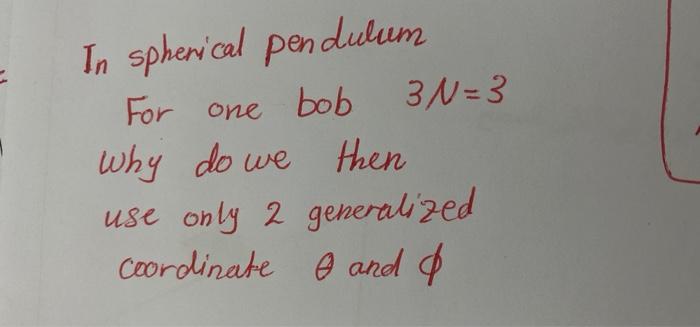 In spherical pendulum
For one bob 3N=3
Why do we then
use only 2 generalized
coordinate θ and ϕ